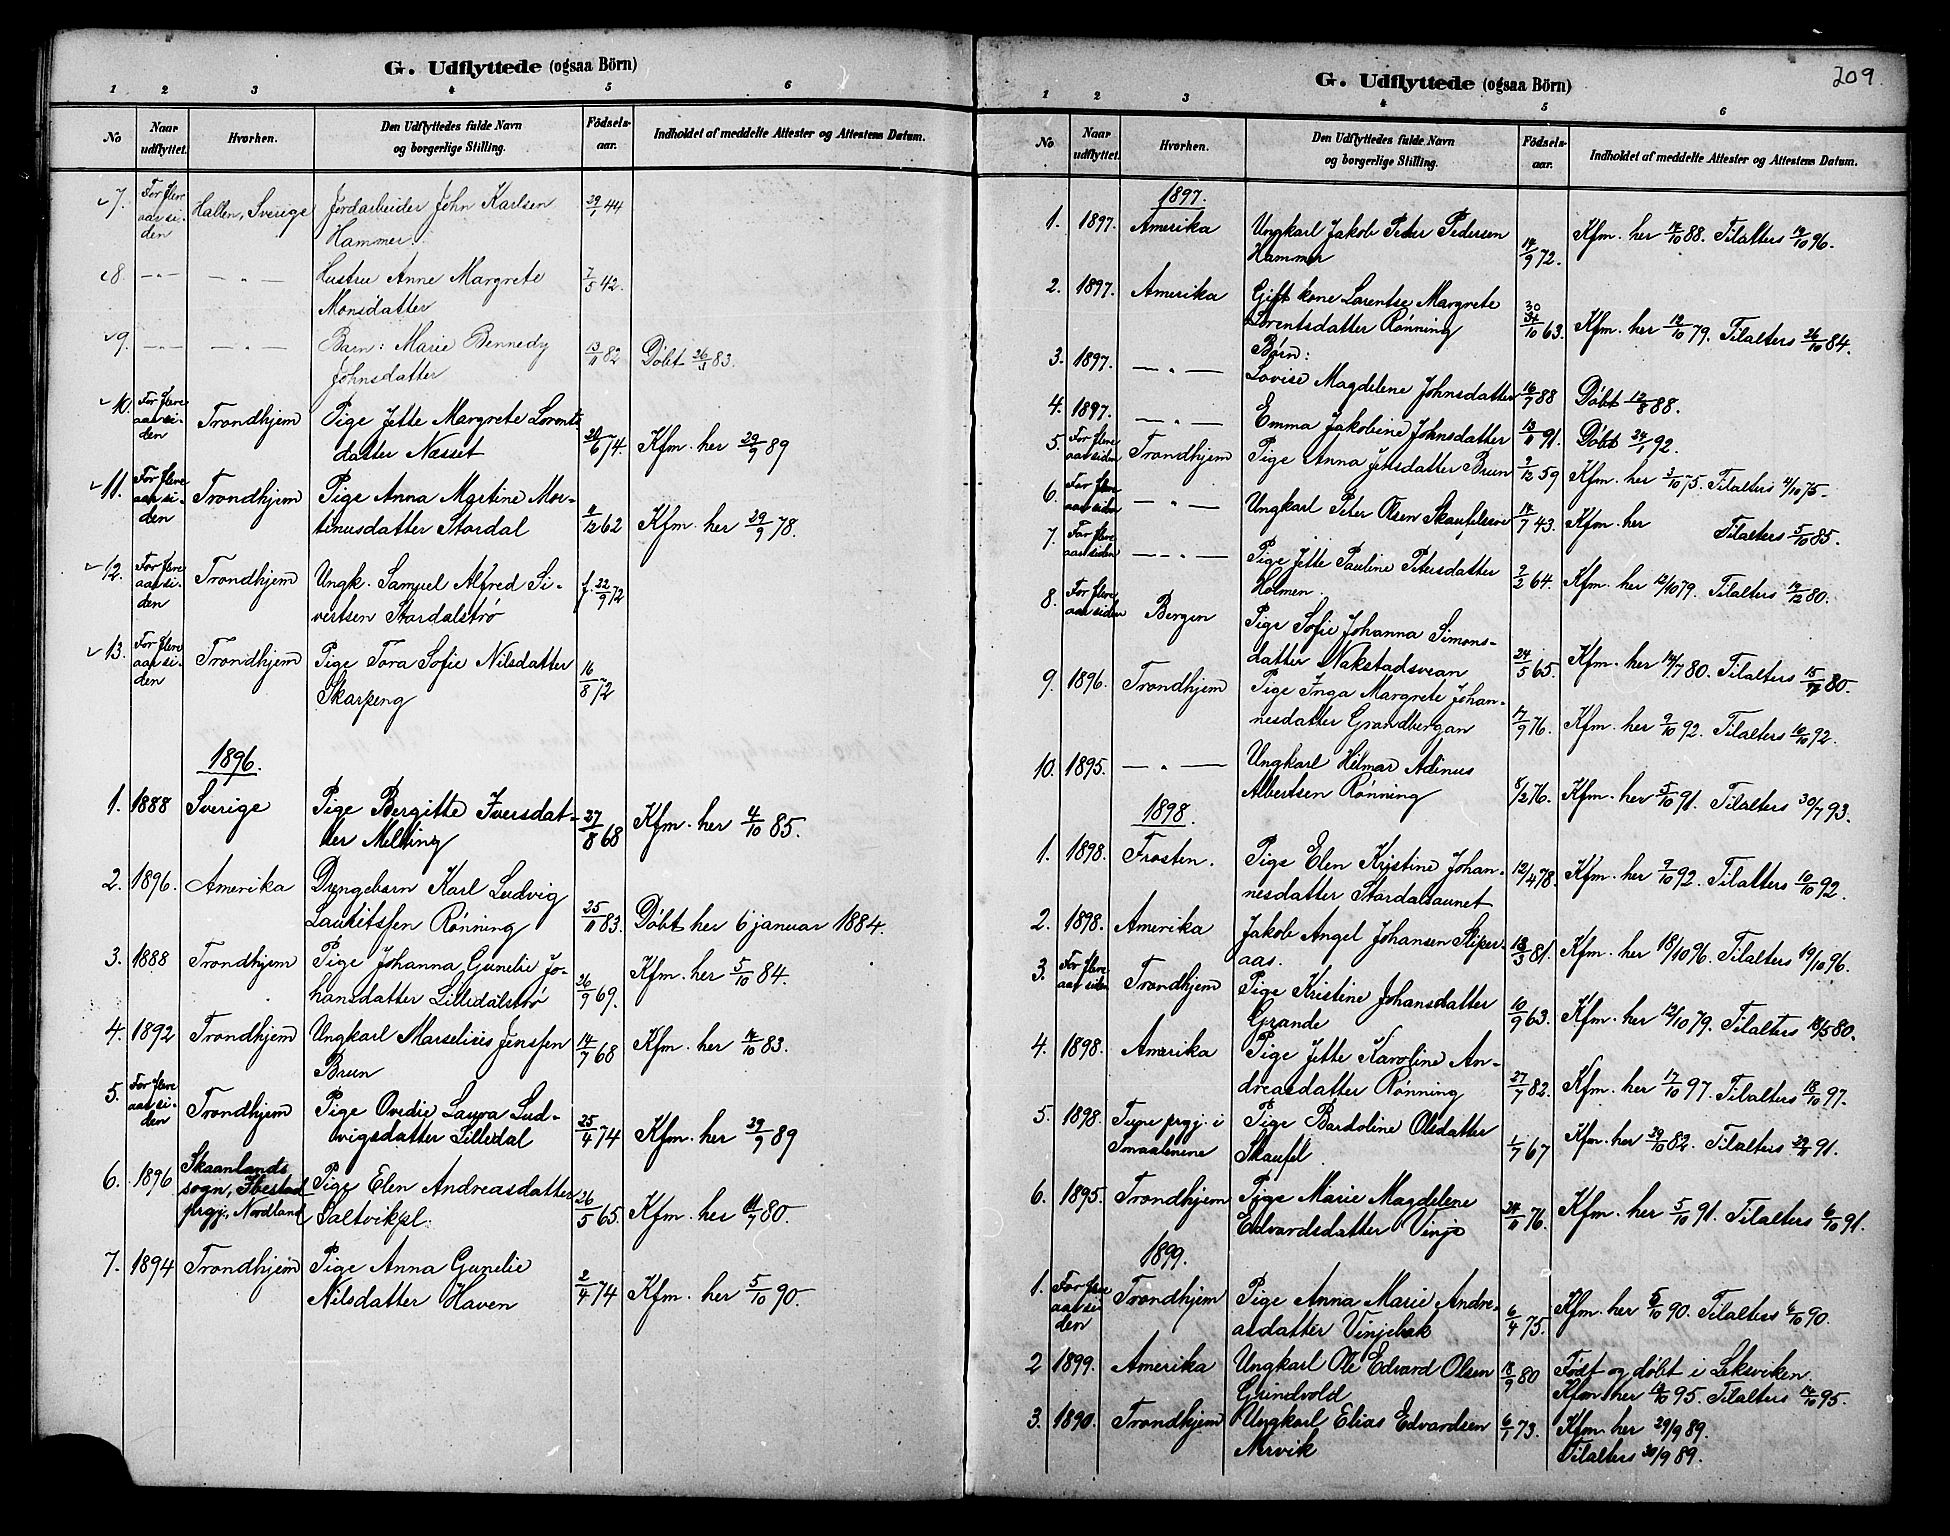 G. Udflyttede (ogsaa Börn)
1 2 3 4 5 6
No
Naar udflyttet.
Hvorhen.
Den Udflyttedes fulde Navn og borgerlige Stilling.
Födsels-aar.
Indholdet af meddelte Attester og Attestens Datum.
7. For flere aar siden Hallen, Sverige Jordarbeider John Karlsen 29/1 44
Hammer.
8 —"— —"— Hustru Anne Margrete 7/5 42.
Monsdatter
9. —"— —"— Barn: Marie Bennedy 13/11 82 Døbt 26/3 83.
Johnsdatter
10. For flere aar siden Trondhjem Pige Jette Margrete Lorents-
datter Næsset 20/6 74. Kfm. her 29/9 89
11. For flere aar siden Trondhjem Pige Anna Martine Mor-
tinusdatter Stordal 11/12 62 Kfm. her 29/9 78.
12. For flere aar siden Trondhjem Ungk. Samuel Alfred Si- f. 22/9 72
vertsen Stordalstrø
13. For flere aar siden Trondhjem Pige Tora Sofie Nilsdatter 16/8 72
Skarpeng
1896.
1. 1888 Sverige Pige Bergitte Iversdat-
ter Melting 27/8 68 Kfm. her 4/10 85.
2. 1896. Amerika Drengebarn Karl Ludvig
Lauritssen Rønning 25/11 83. Døbt her 6 januar 1884.
3. 1888 Trondhjem Pige Johanna Gunelie Jo-
hansdatter Lilledalstrø 26/9 69. Kfm. her 5/10 84.
4. 1892 Trondhjem Ungkarl Marselius Jenssen 14/7 68 Kfm. her 14/10 83.
Brun
5. For flere aar siden Trondhjem Pige Ovedie Laura Lud-
vigsdatter Lilledal 25/4 74 Kfm. her 29/9 89
6. 1896 Skaanlands sogn, Ibestad prgj, Nordland Pige Elen Andreasdatter
Saltvikpl. 26/5 65. Kfm. her 11/7 80.
7. 1894 Trondhjem Pige Anna Gunelie
Nilsdatter Haven 2/4 74 Kfm. her 5/10 90.
G. Udflyttede (ogsaa Börn)
209.
1 2 3 4 5 6
No
Naar udflyttet.
Hvorhen.
Den Udflyttedes fulde Navn og borgerlige Stilling.
Födsels-aar.
Indholdet af meddelte Attester og Attestens Datum.
1897.
1. 1897. Amerika Ungkarl Jakob Peter Pedersen
Hammer 14/9 72. Kfm. her 14/10 88. Tilalters 14/10 96.
2. 1897. Amerika Gift kone Lorentse Margrete
Lorentsdatter Rønning 30/10 63. Kfm. her 12/10 79. Tilalters 26/10 84.
Børn:
3. 1897. —"— Lovise Magdelene Johnsdatter 16/7 88 Døbt 12/8 88.
4. 1897. —"— Emma Jakobine Johnsdatter 13/11 91. Døbt 24/1 92.
5. For flere aar siden Trondhjem Pige Anna Jensdatter Brun 2/12 59 Kfm. her 3/10 75. Tilalters 4/10 75.
6. For flere aar siden —"— Ungkarl Peter Olsen Skaufelseie 14/7 43. Kfm. her Tilalters 5/10 85.
7. For flere aar siden —"— Pige Jette Pauline Petersdatter
Holmen. 2/2 64. Kfm. her 12/10 79. Tilalters 12/12 80.
8. For flere aar siden Bergen Pige Sofie Johanna Simons-
datter Nakstadsvean 24/5 65. Kfm. her 14/7 80. Tilalters 15/7 80.
9. 1896. Trondhjem Pige Inga Margrete Johan-
nesdatter Grandbergan 17/9 76. Kfm. her 9/10 92. Tilalters 10/10 92.
10. 1895. —"— Ungkarl Hilmar Adinus
Albertsen Rønning 8/2 76. Kfm. her 5/10 91. Tilalters 30/7 93.
1898.
1. 1898. Frosten. Pige Elen Kristine Johan-
nesdatter Stordalsaunet 12/4 78. Kfm. her 9/10 92. Tilalters 10/10 92.
2. 1898. Amerika Jakob Angel Johansen Sliper-
aas. 13/3 81. Kfm. her 18/10 96. Tilalters 19/10 96.
3. For flere aar siden Trondhjem Pige Kristine Johansdatter
Grande 10/9 63. Kfm. her 12/10 79. Tilalters 18/5 80.
4. 1898. Amerika Pige Jette Karoline An-
dreasdatter Rønning 27/7 82. Kfm. her 17/10 97. Tilalters 18/10 97.
5. 1898. Tune prgj. i Smaalenene Pige Bardoline Olsdatter
Skaufel. 1/7 67 Kfm. her 29/10 82. Tilalters 91.
6. 1895. Trondhjem Pige Marie Magdelene
Edvardsdatter Vinje 24/11 76. Kfm. her 5/10 91. Tilalters 6/10 91.
1899.
1. For flere aar siden Trondhjem Pige Anna Marie Andre-
asdatter Vinjebak 6/4 75. Kfm. her 5/10 90. Tilalters 6/10 90.
2 1899. Amerika Ungkarl Ole Edvard Olsen 18/9 80 Født og døbt i Leksviken.
Grindvold Kfm. her 95. Tilalters 14/10 95.
3. 1890. Trondhjem Ungkarl Elias Edvardsen 6/1 73. Kfm. her 29/9 89.
Nervik Tilalters 30/9 89.